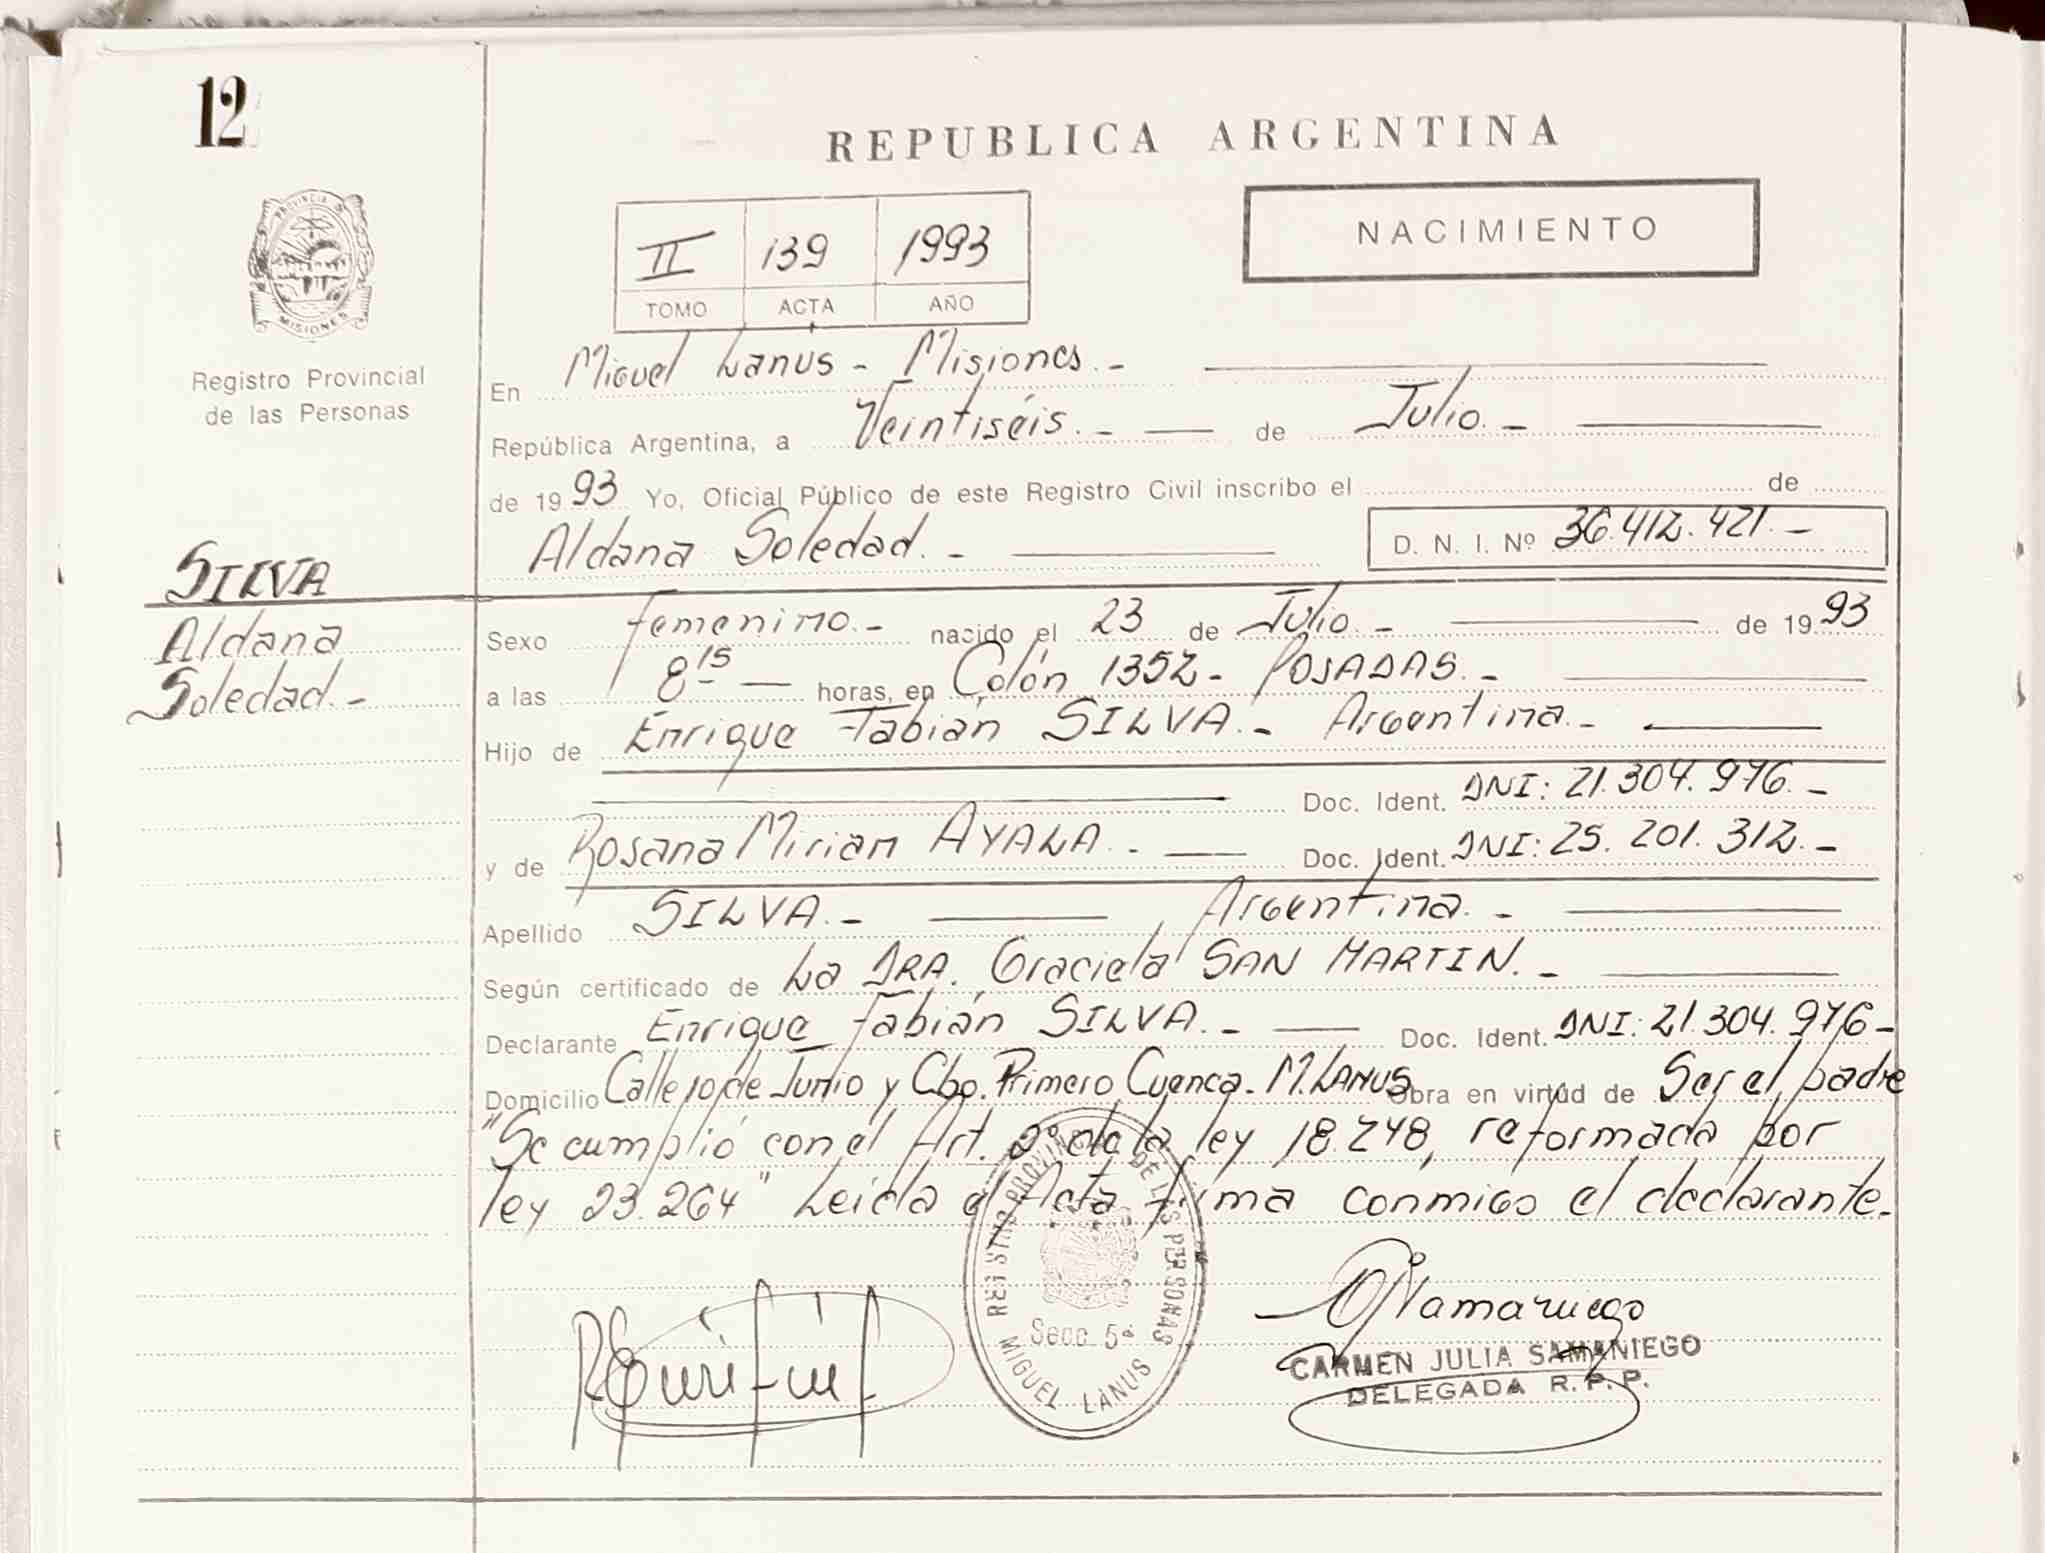 12
REPUBLICA ARGENTINA
PROVINCIA DE
MISIONES
Registro Provincial
de las Personas
II 139 1993
TOMO ACTA AÑO
NACIMIENTO
En Miguel Lanus - Misiones.-
República Argentina, a Veintiséis.- de Julio.-
de 1993 Yo, Oficial Público de este Registro Civil inscribo el de
Aldana Soledad.- D. N. I. Nº 36.412.421.-
SILVA
Aldana
Soledad.-
Sexo femenino.- nacido el 23 de Julio.- de 1993
a las 8 15 horas, en Colón 1352- POSADAS.-
Hijo de Enrique Fabián SILVA.- Argentina.-
Doc. Ident. DNI: 21.304.976.-
y de Rosana Mirian AYALA.- Doc. Ident. DNI: 25.201.312.-
Apellido SILVA.- Argentina.-
Según certificado de La DRA. Graciela SAN MARTIN.-
Declarante Enrique Fabián SILVA.- Doc. Ident. DNI: 21.304.976-
Domicilio Calle 10 de Junio y Cbo. Primero Cuenca- M. LANUS Obra en virtud de Ser el padre
"Se cumplió con el Art. 2º de la ley 18.248, reformada por
ley 23.264" Leida el Acta firma conmigo el declarante.-
REGISTRO PROVINCIAL DE LAS PERSONAS
Secc. 5ª
MIGUEL LANUS
CARMEN JULIA SAMANIEGO
DELEGADA R. P. P.